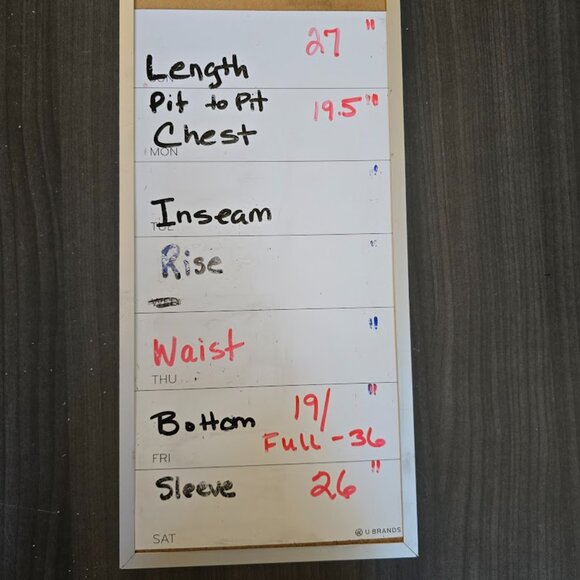 Length 27"
Pit to Pit 19.5"
Chest
MON
Inseam "
Rise "
Waist "
THU
Bottom 19/ "
Full - 36
FRI
Sleeve 26"
SAT
U BRANDS